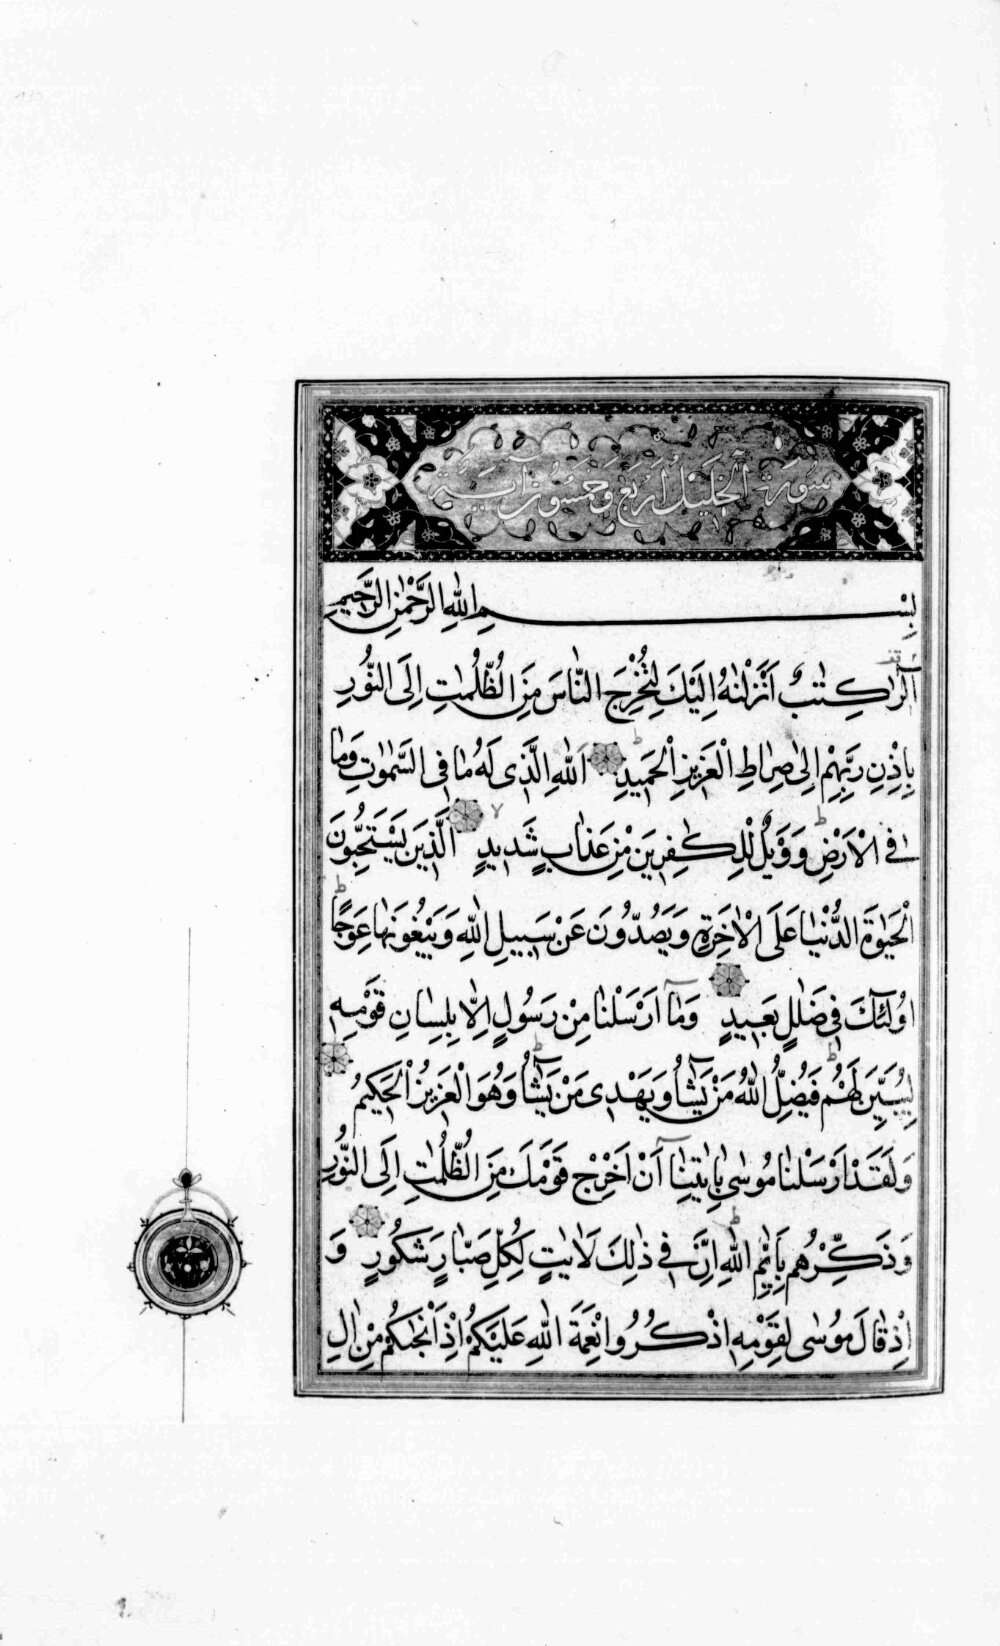 سورة الخليل اربع وخمسون اية
بِسْمِ اللهِ الرَّحْمٰنِ الرَّحِيمِ
الٓرٰ كِتٰبٌ اَنْزَلْنٰهُ اِلَيْكَ لِتُخْرِجَ النَّاسَ مِنَ الظُّلُمٰتِ اِلَى النُّورِ
بِاِذْنِ رَبِّهِمْ اِلٰى صِرَاطِ الْعَزِيزِ الْحَمِيدِ اَللهِ الَّذِى لَهُ مَا فِى السَّمٰوٰتِ وَمَا
فِى الْاَرْضِ وَوَيْلٌ لِلْكٰفِرِينَ مِنْ عَذَابٍ شَدِيدٍ اَلَّذِينَ يَسْتَحِبُّونَ
الْحَيٰوةَ الدُّنْيَا عَلَى الْاٰخِرَةِ وَيَصُدُّونَ عَنْ سَبِيلِ اللهِ وَيَبْغُونَهَا عِوَجًا
اُولٰٓئِكَ فِى ضَلٰلٍ بَعِيدٍ وَمَٓا اَرْسَلْنَا مِنْ رَسُولٍ اِلَّا بِلِسَانِ قَوْمِهِ
لِيُبَيِّنَ لَهُمْ فَيُضِلُّ اللهُ مَنْ يَشَٓاءُ وَيَهْدِى مَنْ يَشَٓاءُ وَهُوَ الْعَزِيزُ الْحَكِيمُ
وَلَقَدْ اَرْسَلْنَا مُوسٰى بِاٰيٰتِنَٓا اَنْ اَخْرِجْ قَوْمَكَ مِنَ الظُّلُمٰتِ اِلَى النُّورِ
وَذَكِّرْهُمْ بِاَيّٰمِ اللهِ اِنَّ فِى ذٰلِكَ لَاٰيٰتٍ لِكُلِّ صَبَّارٍ شَكُورٍ وَ
اِذْ قَالَ مُوسٰى لِقَوْمِهِ اذْكُرُوا نِعْمَةَ اللهِ عَلَيْكُمْ اِذْ اَنْجٰكُمْ مِنْ اٰلِ